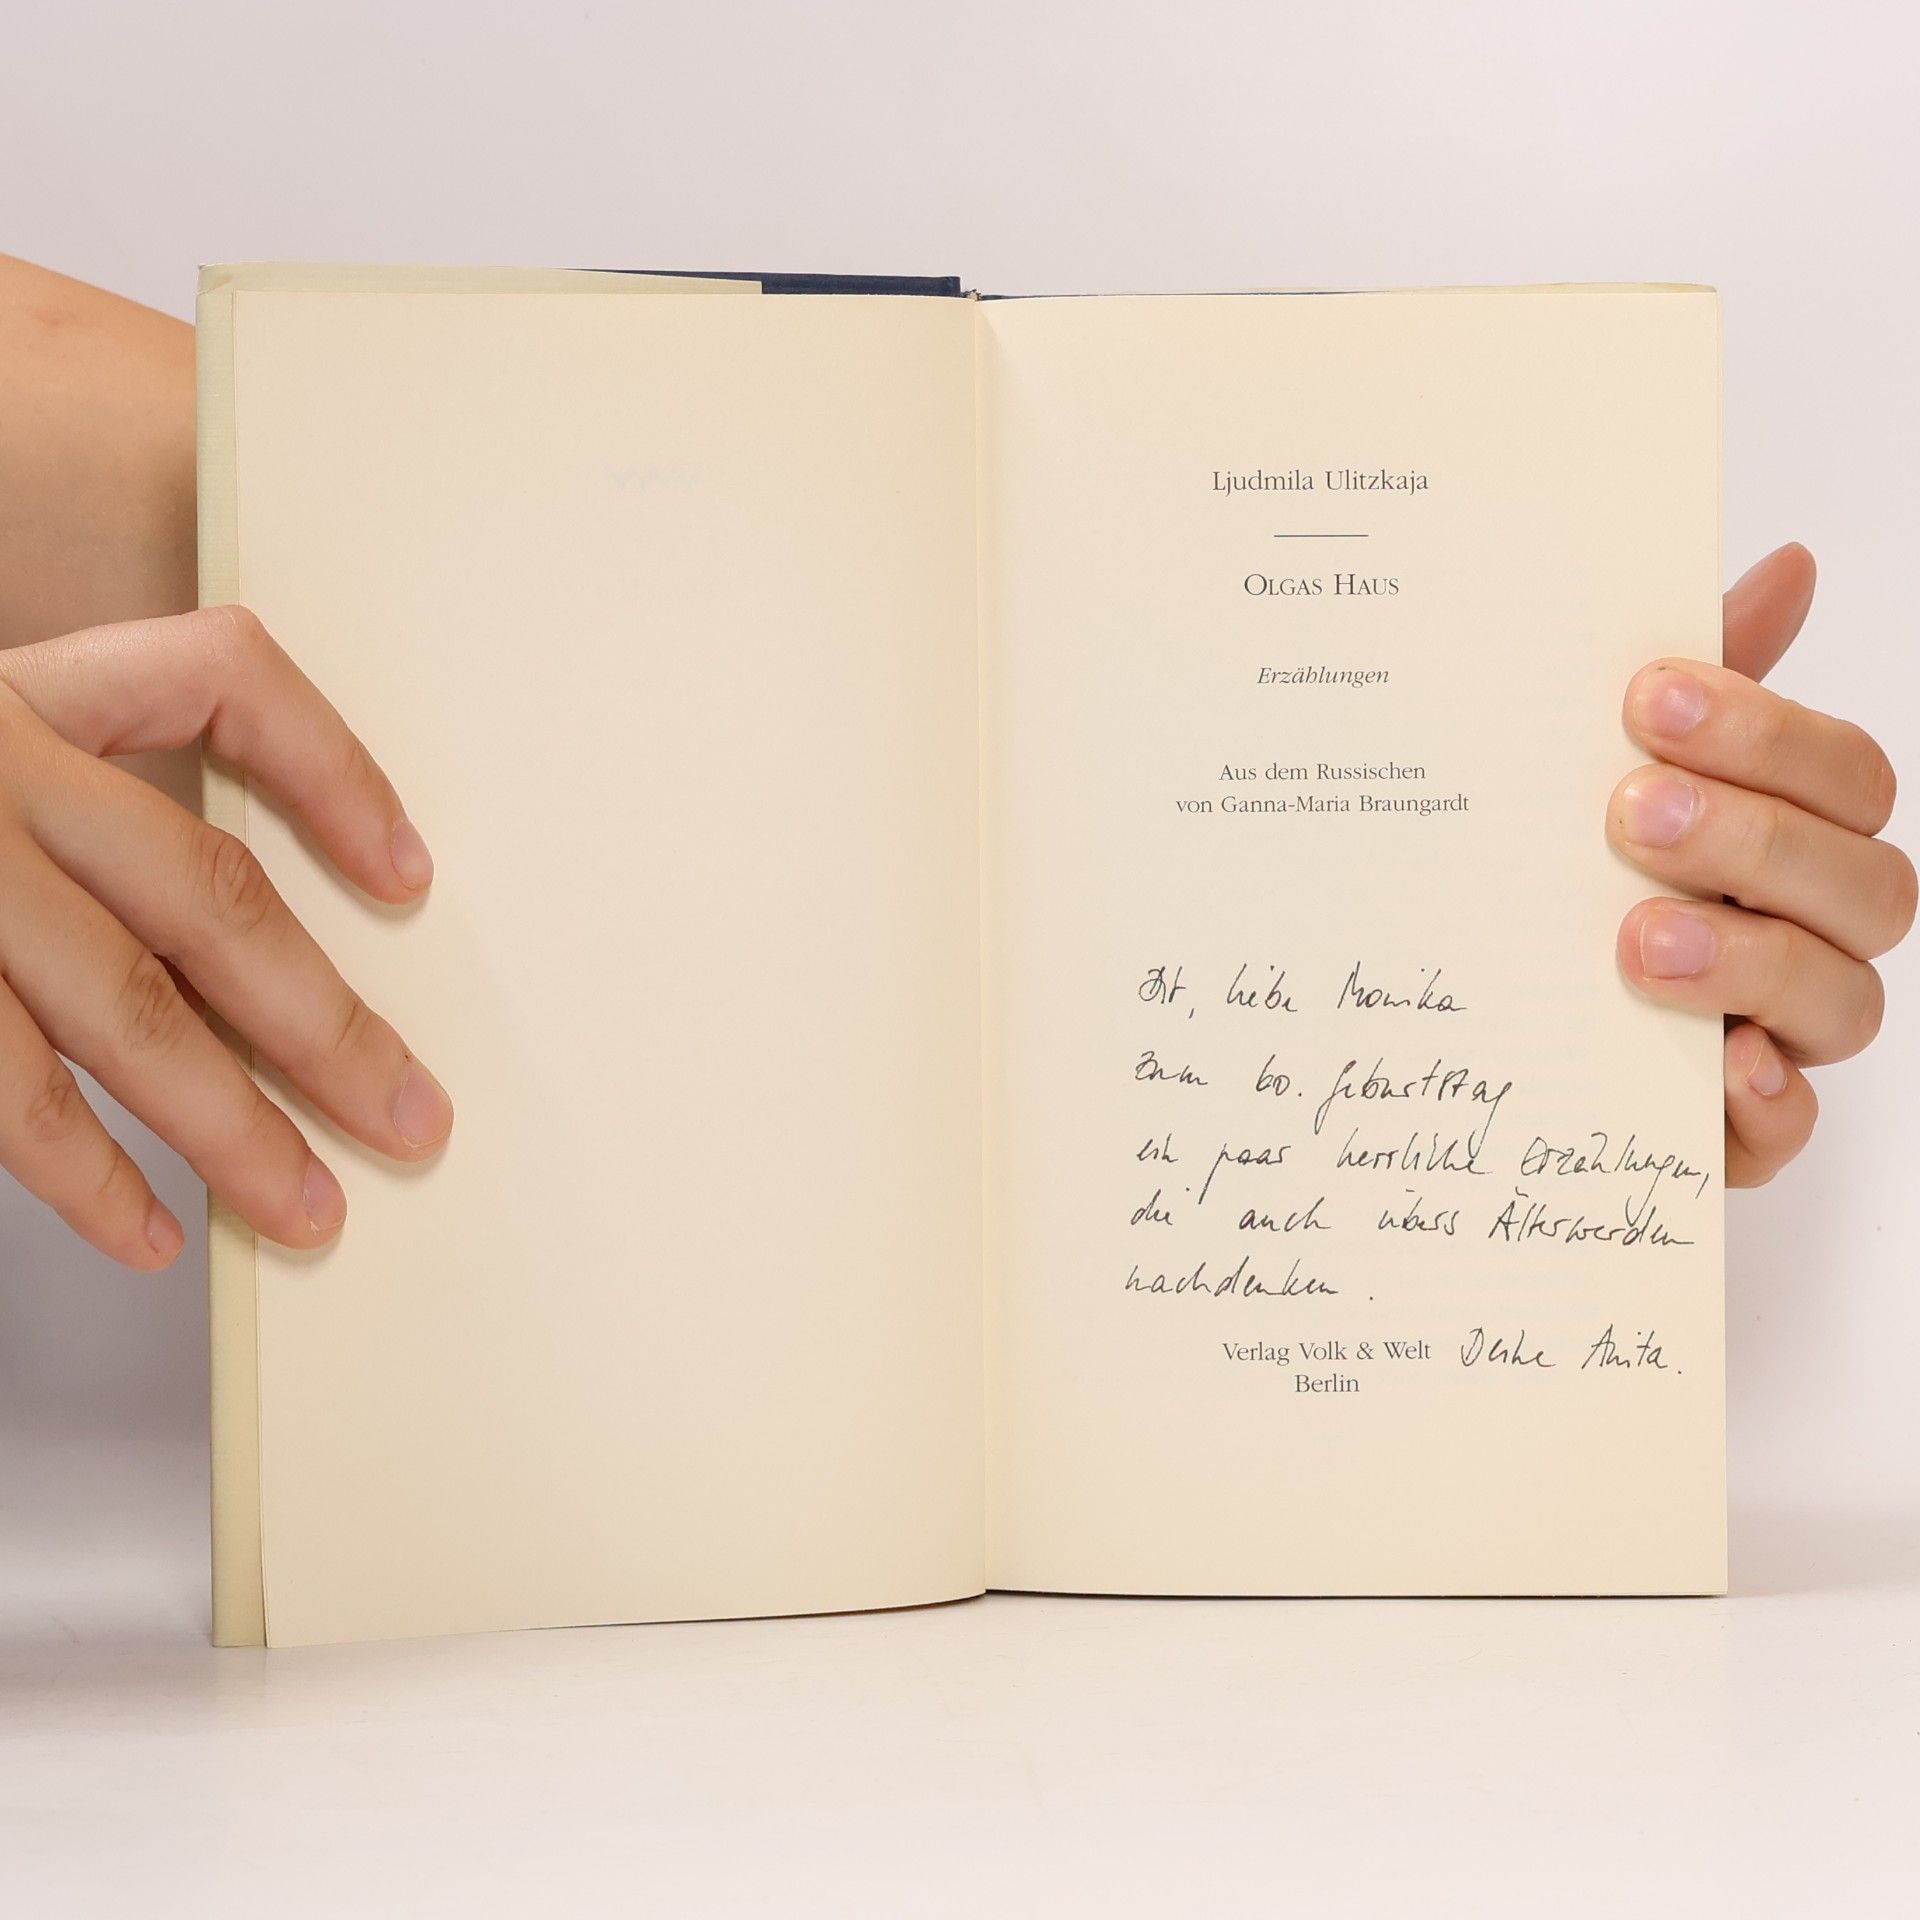 Ljudmila Ulitzkaja
OLGAS HAUS
Erzählungen
Aus dem Russischen
von Ganna-Maria Braungardt
Dir, liebe Monika
zum 60. Geburtstag
ein paar herrliche Erzählungen,
die auch übers Älterwerden
nachdenken.
Verlag Volk & Welt Deine Anita.
Berlin